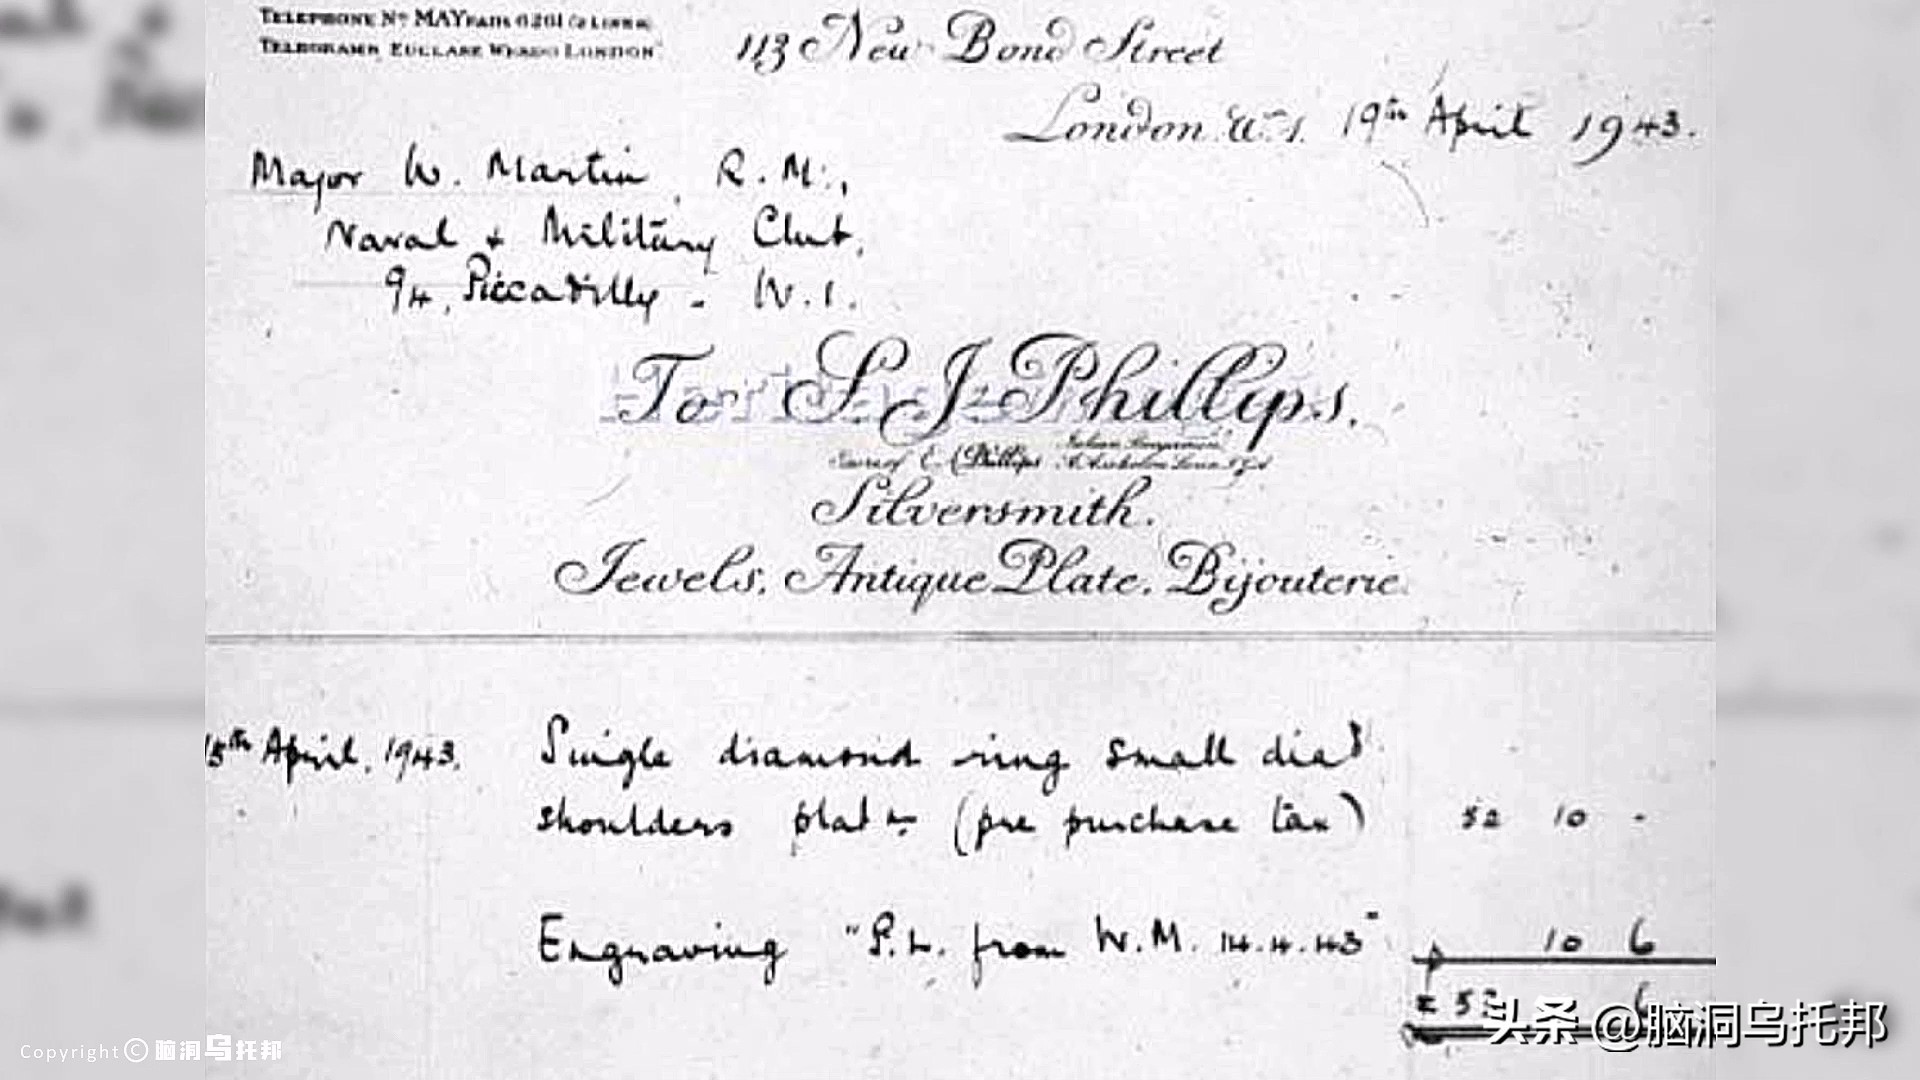 TELEPHONE No MAYFAIR 6261 (2 LINES)
TELEGRAMS EULLASE WESDO LONDON
113 New Bond Street
London W.1. 19th April 1943.
Major W. Martin, R.M.,
Naval + Military Club,
94, Piccadilly - W.1.
To S. J. Phillips.
E. Phillips
Silversmith.
Jewels, Antique Plate, Bijouterie.
15th April, 1943. Single diamond ring small diad
shoulders plat (pre purchase tax) 52 10 -
Engraving "P.L. from W.M. 14.4.43" 10 6
£ 53 6
头条 @脑洞乌托邦
Copyright © 脑洞乌托邦